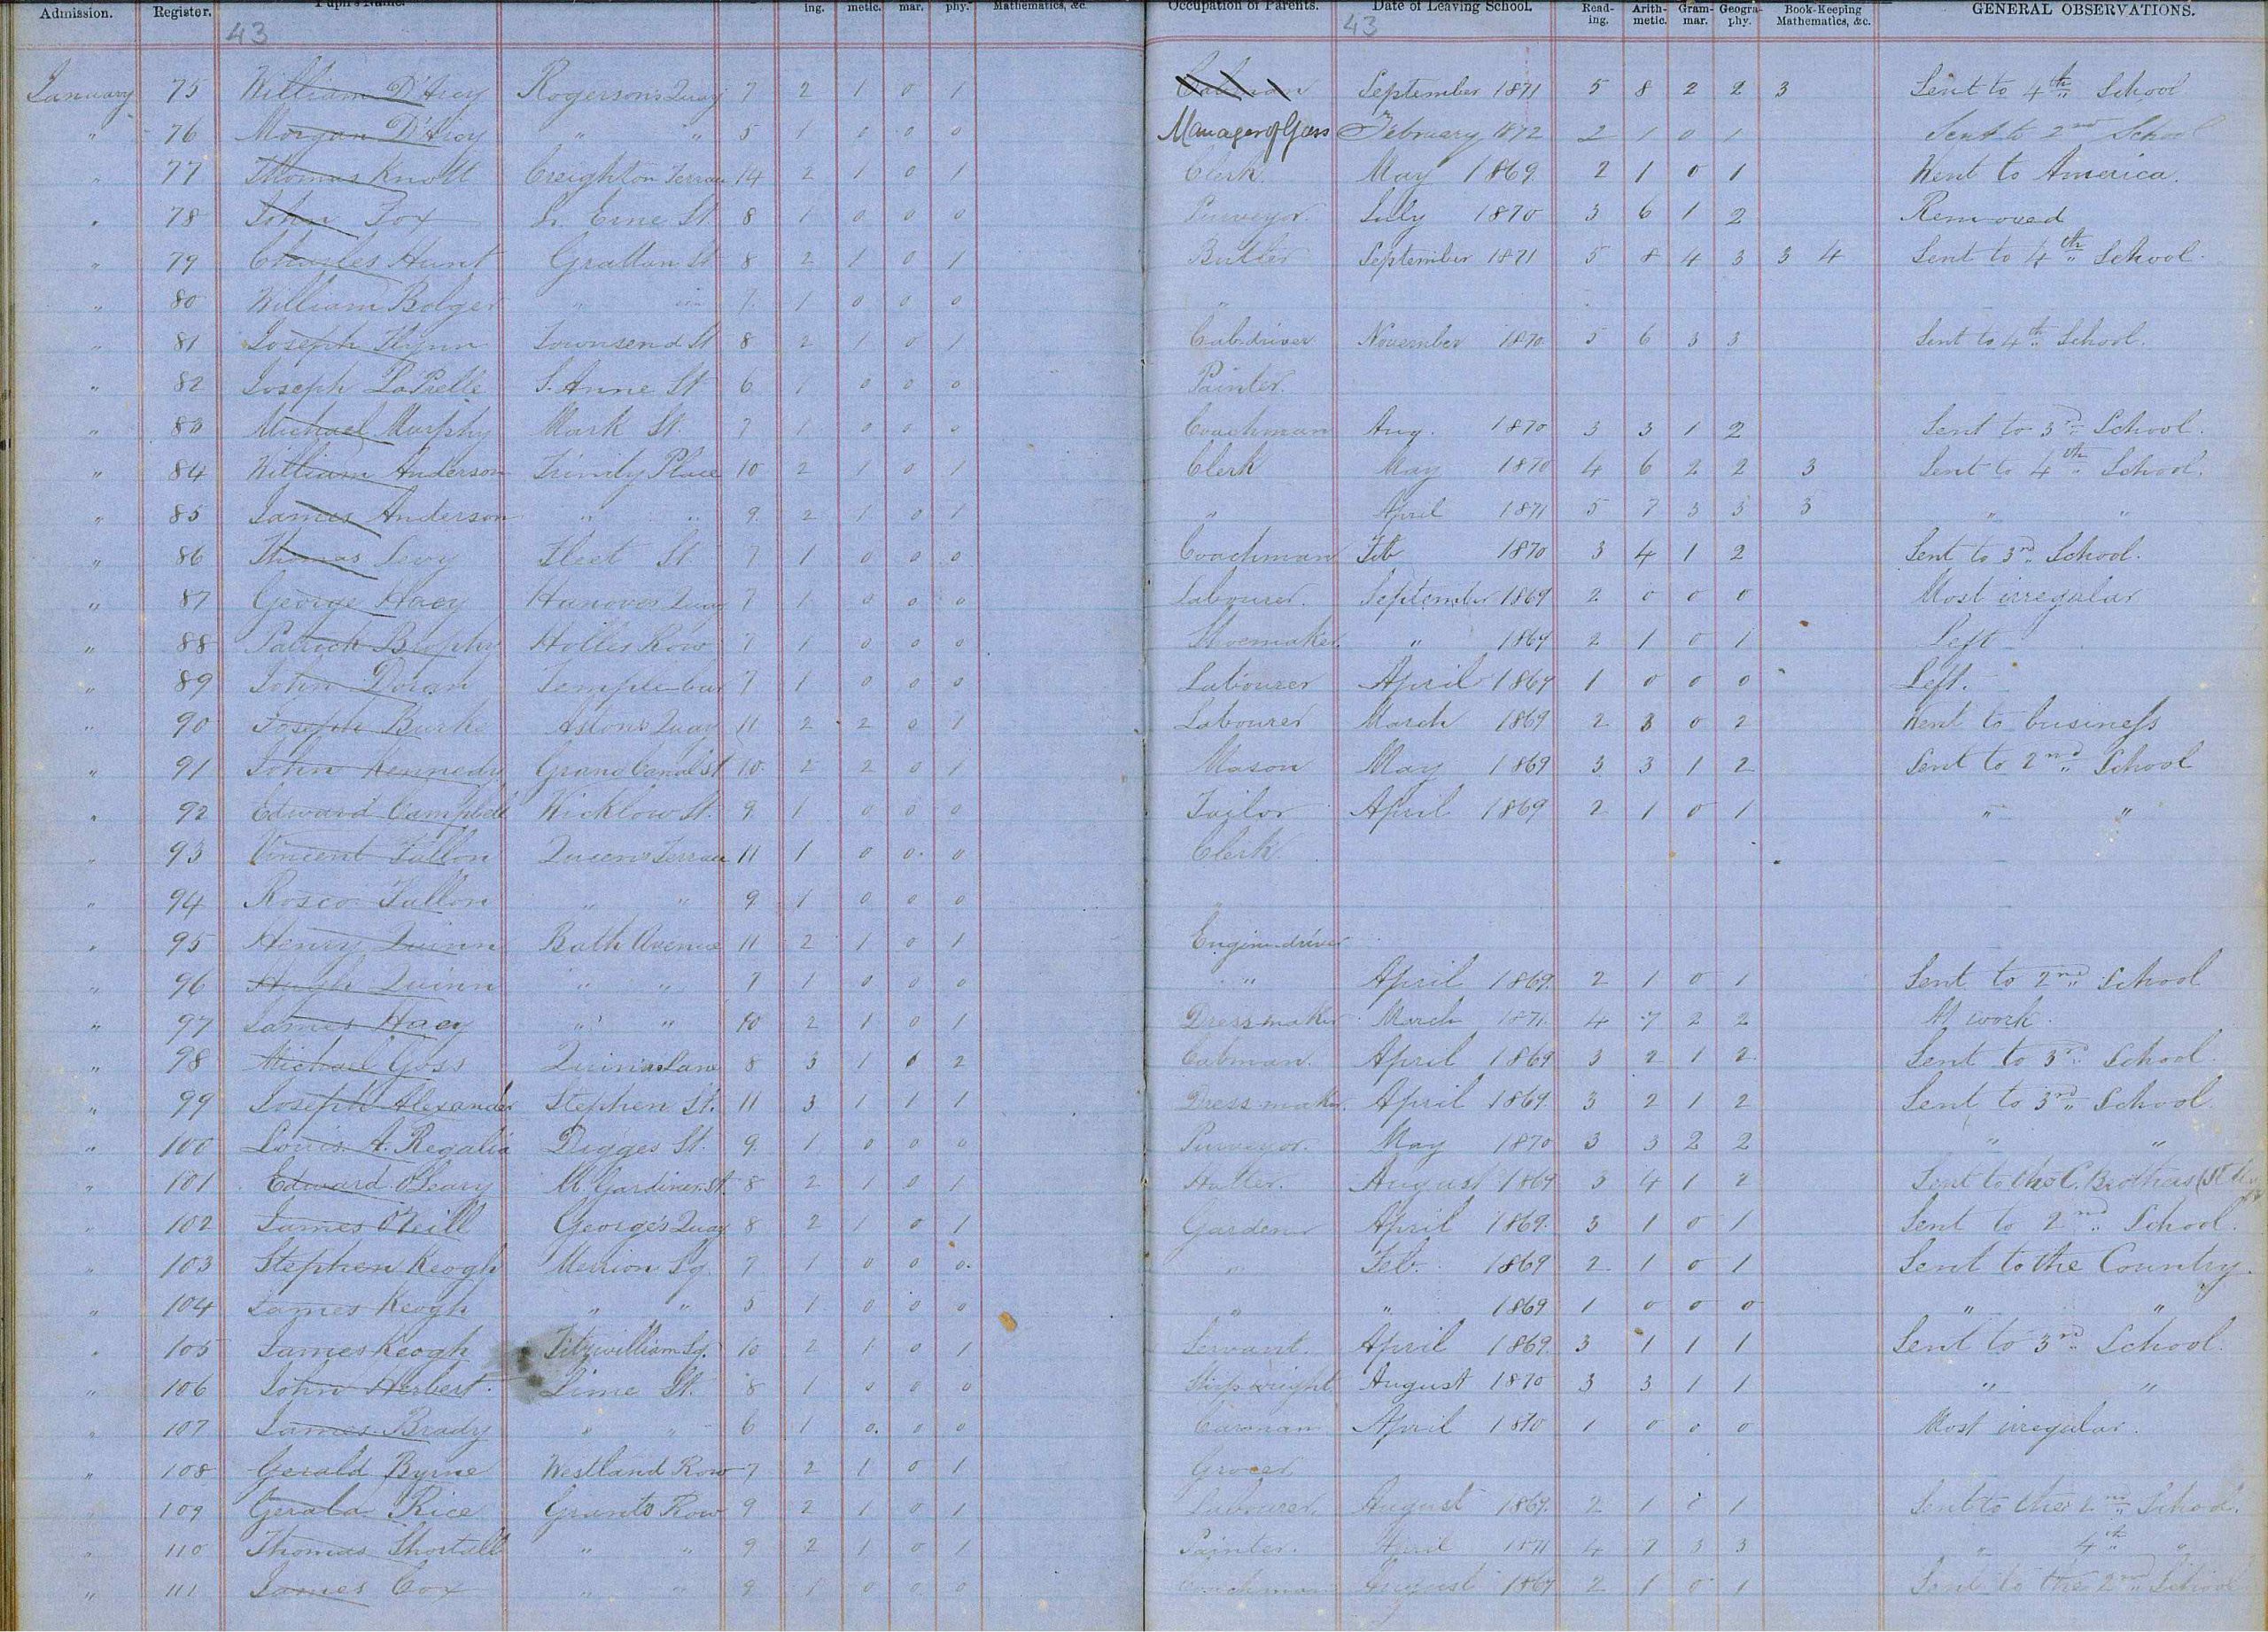 Admission. Register. Pupil's Name. ing. metic. mar. phy. Mathematics, &c. Occupation of Parents. Date of Leaving School. Read-ing. Arith-metic. Gram-mar. Geogra-phy. Book-Keeping Mathematics, &c. GENERAL OBSERVATIONS.
43 43
January 75 William D'Arcy Rogerson's Quay 7 2 1 0 1 Cabman September 1871 5 8 2 2 3 Sent to 4th School
" 76 Morgan D'Arcy " " 5 1 0 0 0 Manager of Gass February 1872 2 1 0 1 Sent to 2nd School
" 77 Thomas Knott Creighton Terrace 14 2 1 0 1 Clerk May 1869 2 1 0 1 Went to America.
" 78 John Fox L. Erne St. 8 1 0 0 0 Purveyor. July 1870 3 6 1 2 Removed
" 79 Charles Hunt Grattan St 8 2 1 0 1 Butler September 1871 5 8 4 3 3 4 Sent to 4th School.
" 80 William Bolger " " 7 1 0 0 0 "
" 81 Joseph Flynn Townsend St 8 2 1 0 1 Cab-driver November 1870 5 6 3 3 Sent to 4th School.
" 82 Joseph S. Anne St 6 1 0 0 0 Painter.
" 83 Michael Murphy Mark St. 7 1 0 0 0 Coachman Aug. 1870 3 3 1 2 Sent to 3rd School.
" 84 William Anderson Trinity Place 10 2 1 0 1 Clerk May 1870 4 6 2 2 3 Sent to 4th School.
" 85 James Anderson " " 9 2 1 0 1 " April 1871 5 7 3 3 3 " "
" 86 Thomas Fleet St 7 1 0 0 0 Coachman Feb 1870 3 4 1 2 Sent to 3rd School.
" 87 George Hacy Hanover Quay 7 1 0 0 0 Labourer. September 1869 2 0 0 0 Most irregular
" 88 Patrick Brophy Holles Row 7 1 0 0 0 Shoemaker " 1869 2 1 0 1 Left
" 89 John Doran Temple-bar 7 1 0 0 0 Labourer April 1869 1 0 0 0 Left.
" 90 Joseph Burke Aston's Quay 11 2 2 0 1 Labourer March 1869 2 3 0 2 Went to business
" 91 John Kennedy Grand Canal st 10 2 2 0 1 Mason May 1869 3 3 1 2 Sent to 2nd School
" 92 Edward Campbell Wicklow St. 9 1 0 0 0 Tailor April 1869 2 1 0 1 " "
" 93 Vincent Fallon Queens Terrace 11 1 0 0 0 Clerk
" 94 Rosco Fallon " " 9 1 0 0 0 "
" 95 Henry Quinn Bath Avenue 11 2 1 0 1 Engine-driver
" 96 Hugh Quinn " " 7 1 0 0 0 " April 1869. 2 1 0 1 Sent to 2nd School
" 97 James Hacy " " 10 2 1 0 1 Dressmaker March 1871 4 7 2 2 At work.
" 98 Michael Goss Quinn's Lane 8 3 1 0 2 Cabman. April 1869 3 2 1 2 Sent to 3rd School.
" 99 Joseph Alexander Stephen St. 11 3 1 1 1 Dressmaker. April 1869. 3 2 1 2 Sent to 3rd School
" 100 Louis A. Regalia Digges St. 9 1 0 0 0 Purveyor. May 1870 3 3 2 2 " "
" 101 Edward O'Leary M. Gardiner St. 8 2 1 0 1 Hatter. August 1869 3 4 1 2 Sent to the C. Brothers
" 102 James O'Neill George's Quay 8 2 1 0 1 Gardener April 1869. 3 1 0 1 Sent to 2nd School.
" 103 Stephen Keogh Merrion Sq. 7 1 0 0 0 " Feb. 1869 2 1 0 1 Sent to the Country.
" 104 James Keogh " " 5 1 0 0 0 " " 1869 1 0 0 0 " "
" 105 James Keogh Fitzwilliam Sq. 10 2 1 0 1 Servant. April 1869. 3 1 1 1 Sent to 3rd School.
" 106 John Herbert Lime St. 8 1 0 0 0 Shipwright August 1870 3 3 1 1 " "
" 107 James Brady " " 6 1 0 0 0 Carman April 1870 1 0 0 0 Most irregular.
" 108 Gerald Byrne Westland Row 7 2 1 0 1 Grocer
" 109 Gerald Rice Grants Row 9 2 1 0 1 Labourer. August 1869. 2 1 1 Sent to the 2nd School.
" 110 Thomas Shortall " " 9 2 1 0 1 Painter. April 1871 4 7 3 3 " 4th "
" 111 James Cox " " 9 1 0 0 0 Coachman August 1869 2 1 0 1 Sent to the 2nd School